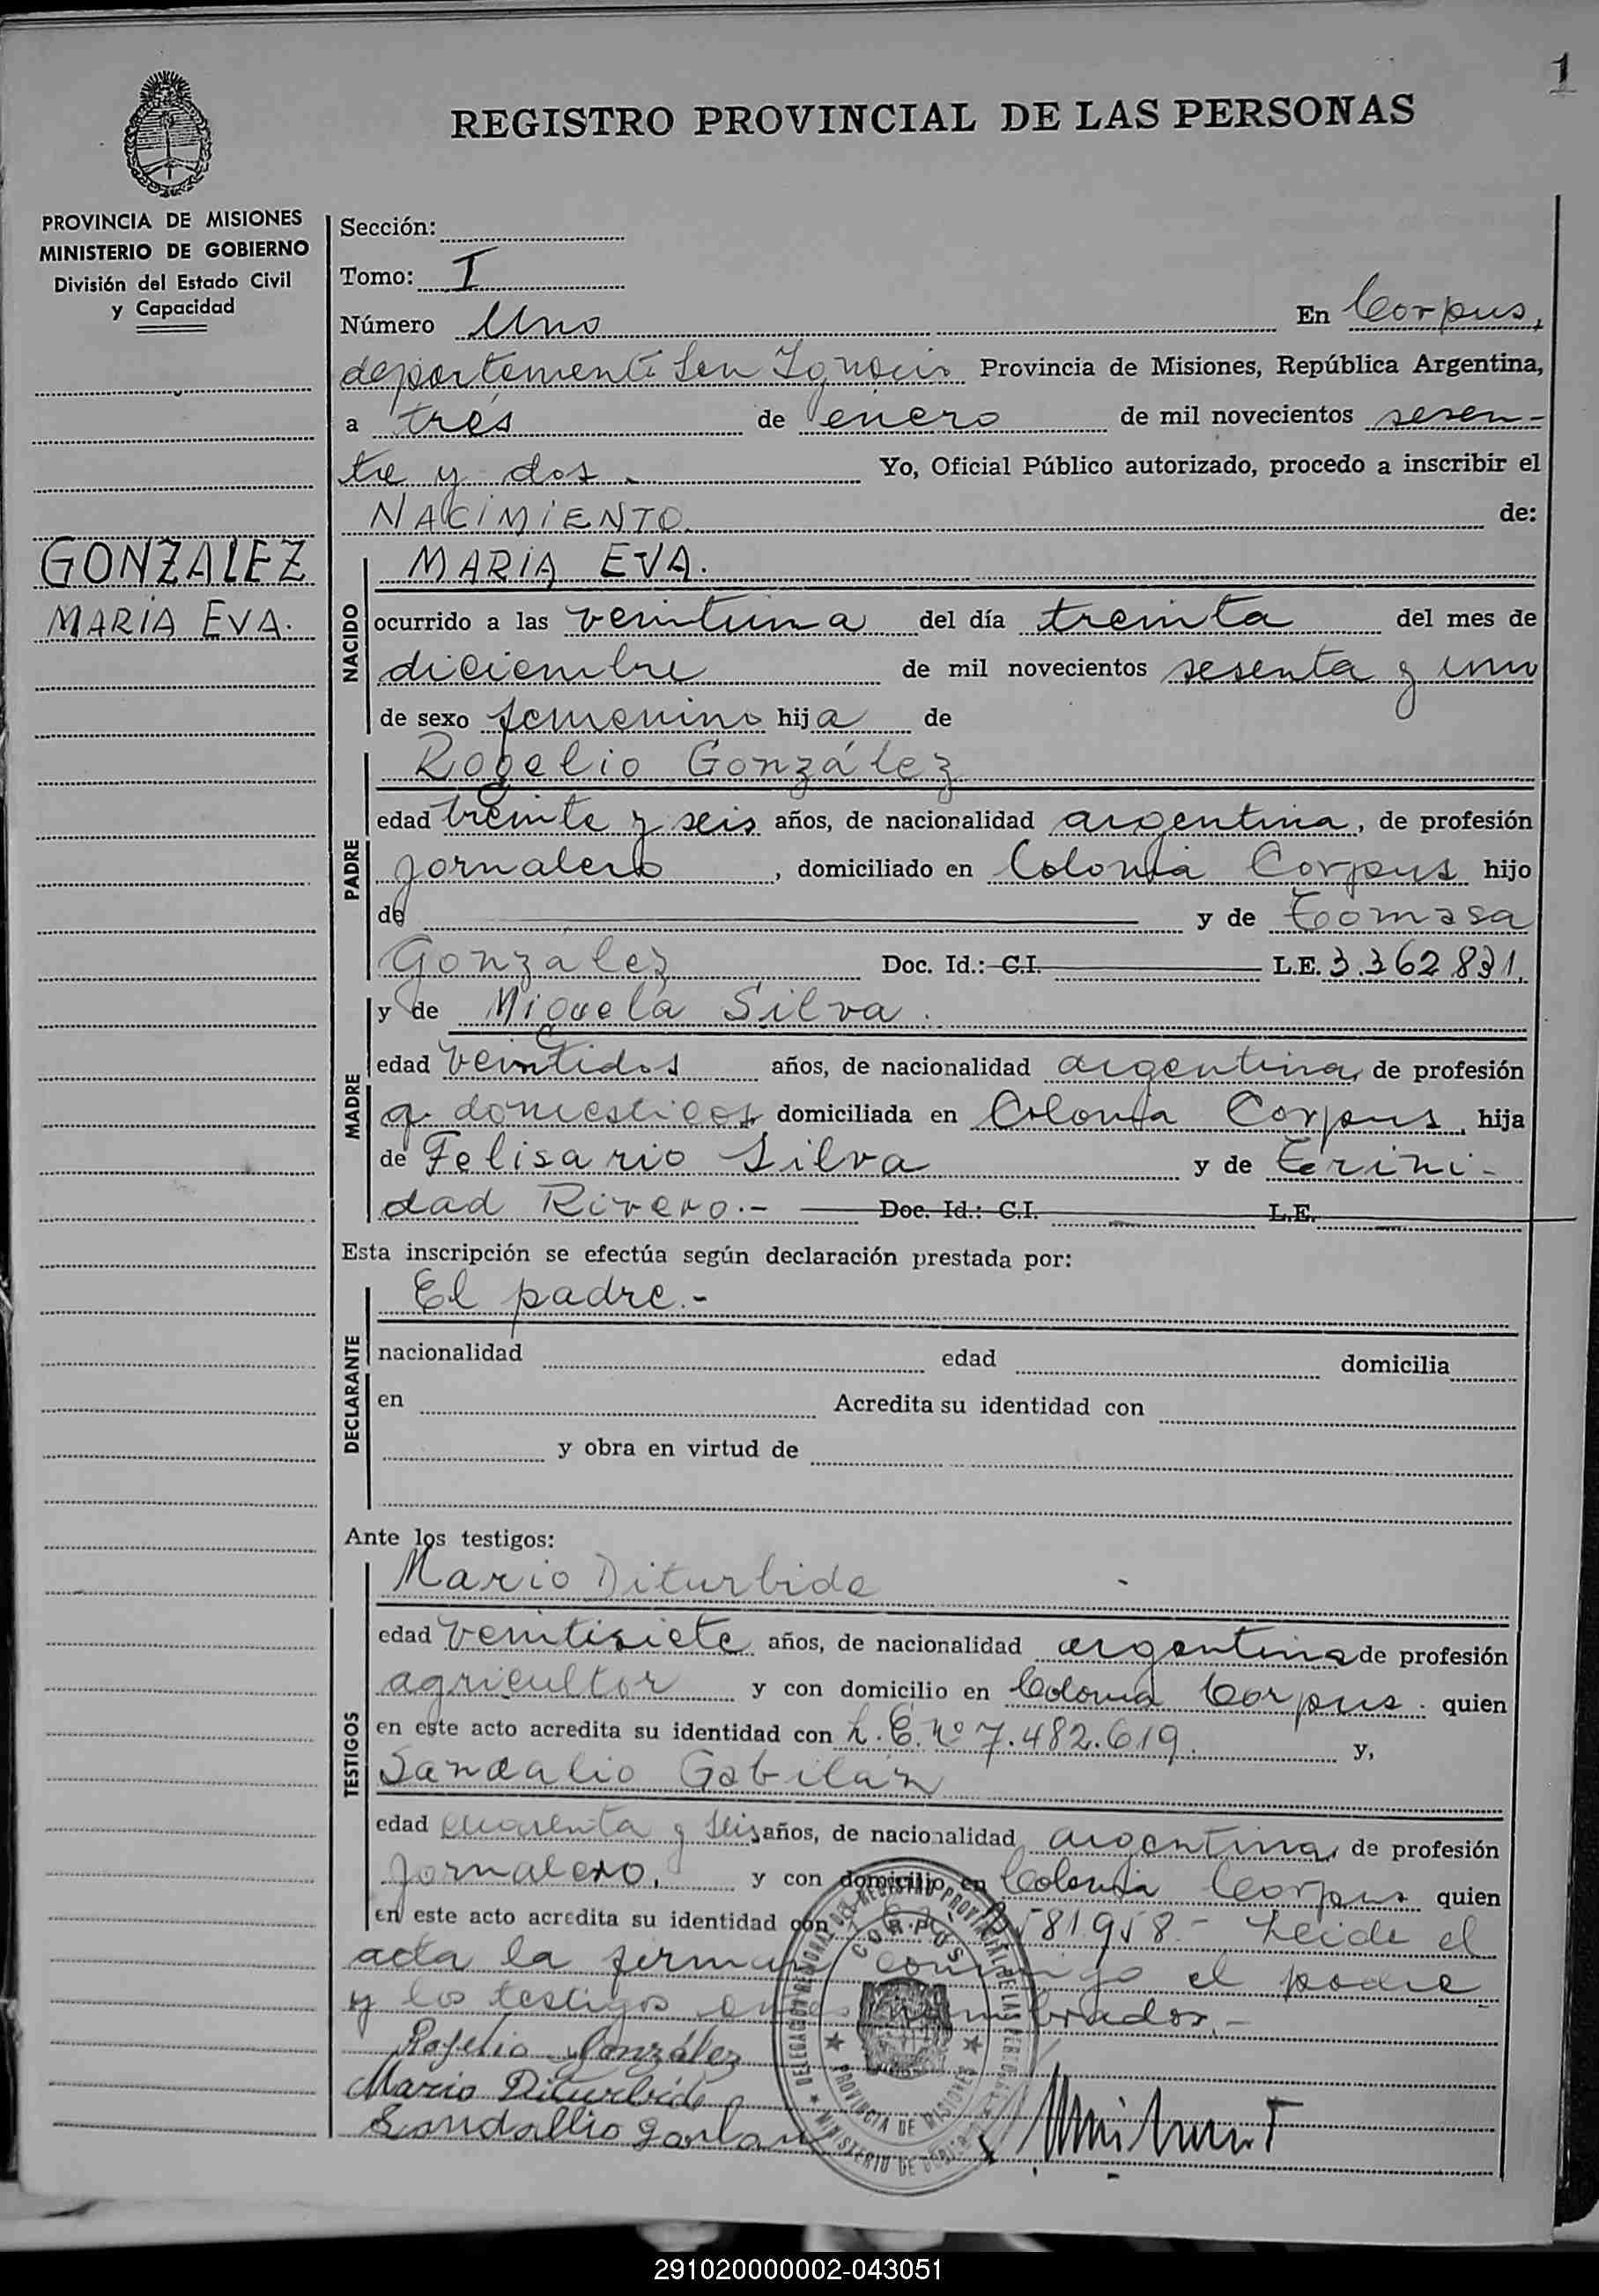 1
REGISTRO PROVINCIAL DE LAS PERSONAS
PROVINCIA DE MISIONES
MINISTERIO DE GOBIERNO
División del Estado Civil
y Capacidad
GONZALEZ
MARÍA EVA.
Sección:
Tomo: I
Número Uno En Corpus,
departamento San Ignacio Provincia de Misiones, República Argentina,
a tres de enero de mil novecientos sesen-
ta y dos. Yo, Oficial Público autorizado, procedo a inscribir el
NACIMIENTO de:
NACIDO
MARIA EVA.
ocurrido a las veintuna del día treinta del mes de
diciembre de mil novecientos sesenta y uno
de sexo femenino hija de
PADRE
Rogelio González
edad treinta y seis años, de nacionalidad argentina, de profesión
jornalero, domiciliado en Colonia Corpus hijo
de y de Tomasa
González Doc. Id.: C.I. L.E. 3.362.831.
MADRE
y de Miguela Silva.
edad veintidos años, de nacionalidad argentina, de profesión
q. domesticos domiciliada en Colonia Corpus, hija
de Felisario Silva y de Trini-
dad Rivero.- Doc. Id.: C.I. L.E.
Esta inscripción se efectúa según declaración prestada por:
DECLARANTE
El padre.-
nacionalidad edad domicilia
en Acredita su identidad con
y obra en virtud de
Ante los testigos:
TESTIGOS
Mario Diturbide
edad veintisiete años, de nacionalidad argentina de profesión
agricultor y con domicilio en Colonia Corpus. quien
en este acto acredita su identidad con L.E. Nº 7.482.619. y,
Sandalio Gabilán
edad cuarenta y seis años, de nacionalidad argentina, de profesión
jornalero, y con domicilio en Colonia Corpus quien
en este acto acredita su identidad con 581958.- Leida el
acta la firman conmigo el padre
y los testigos antes nombrados.-
Rogelio González
Mario Diturbide
Sandallio
DELEGACION REGIONAL DEL REGISTRO PROVINCIAL DE LAS PERSONAS
CORPUS
PROVINCIA DE MISIONES
MINISTERIO DE GOBIERNO
291020000002-043051